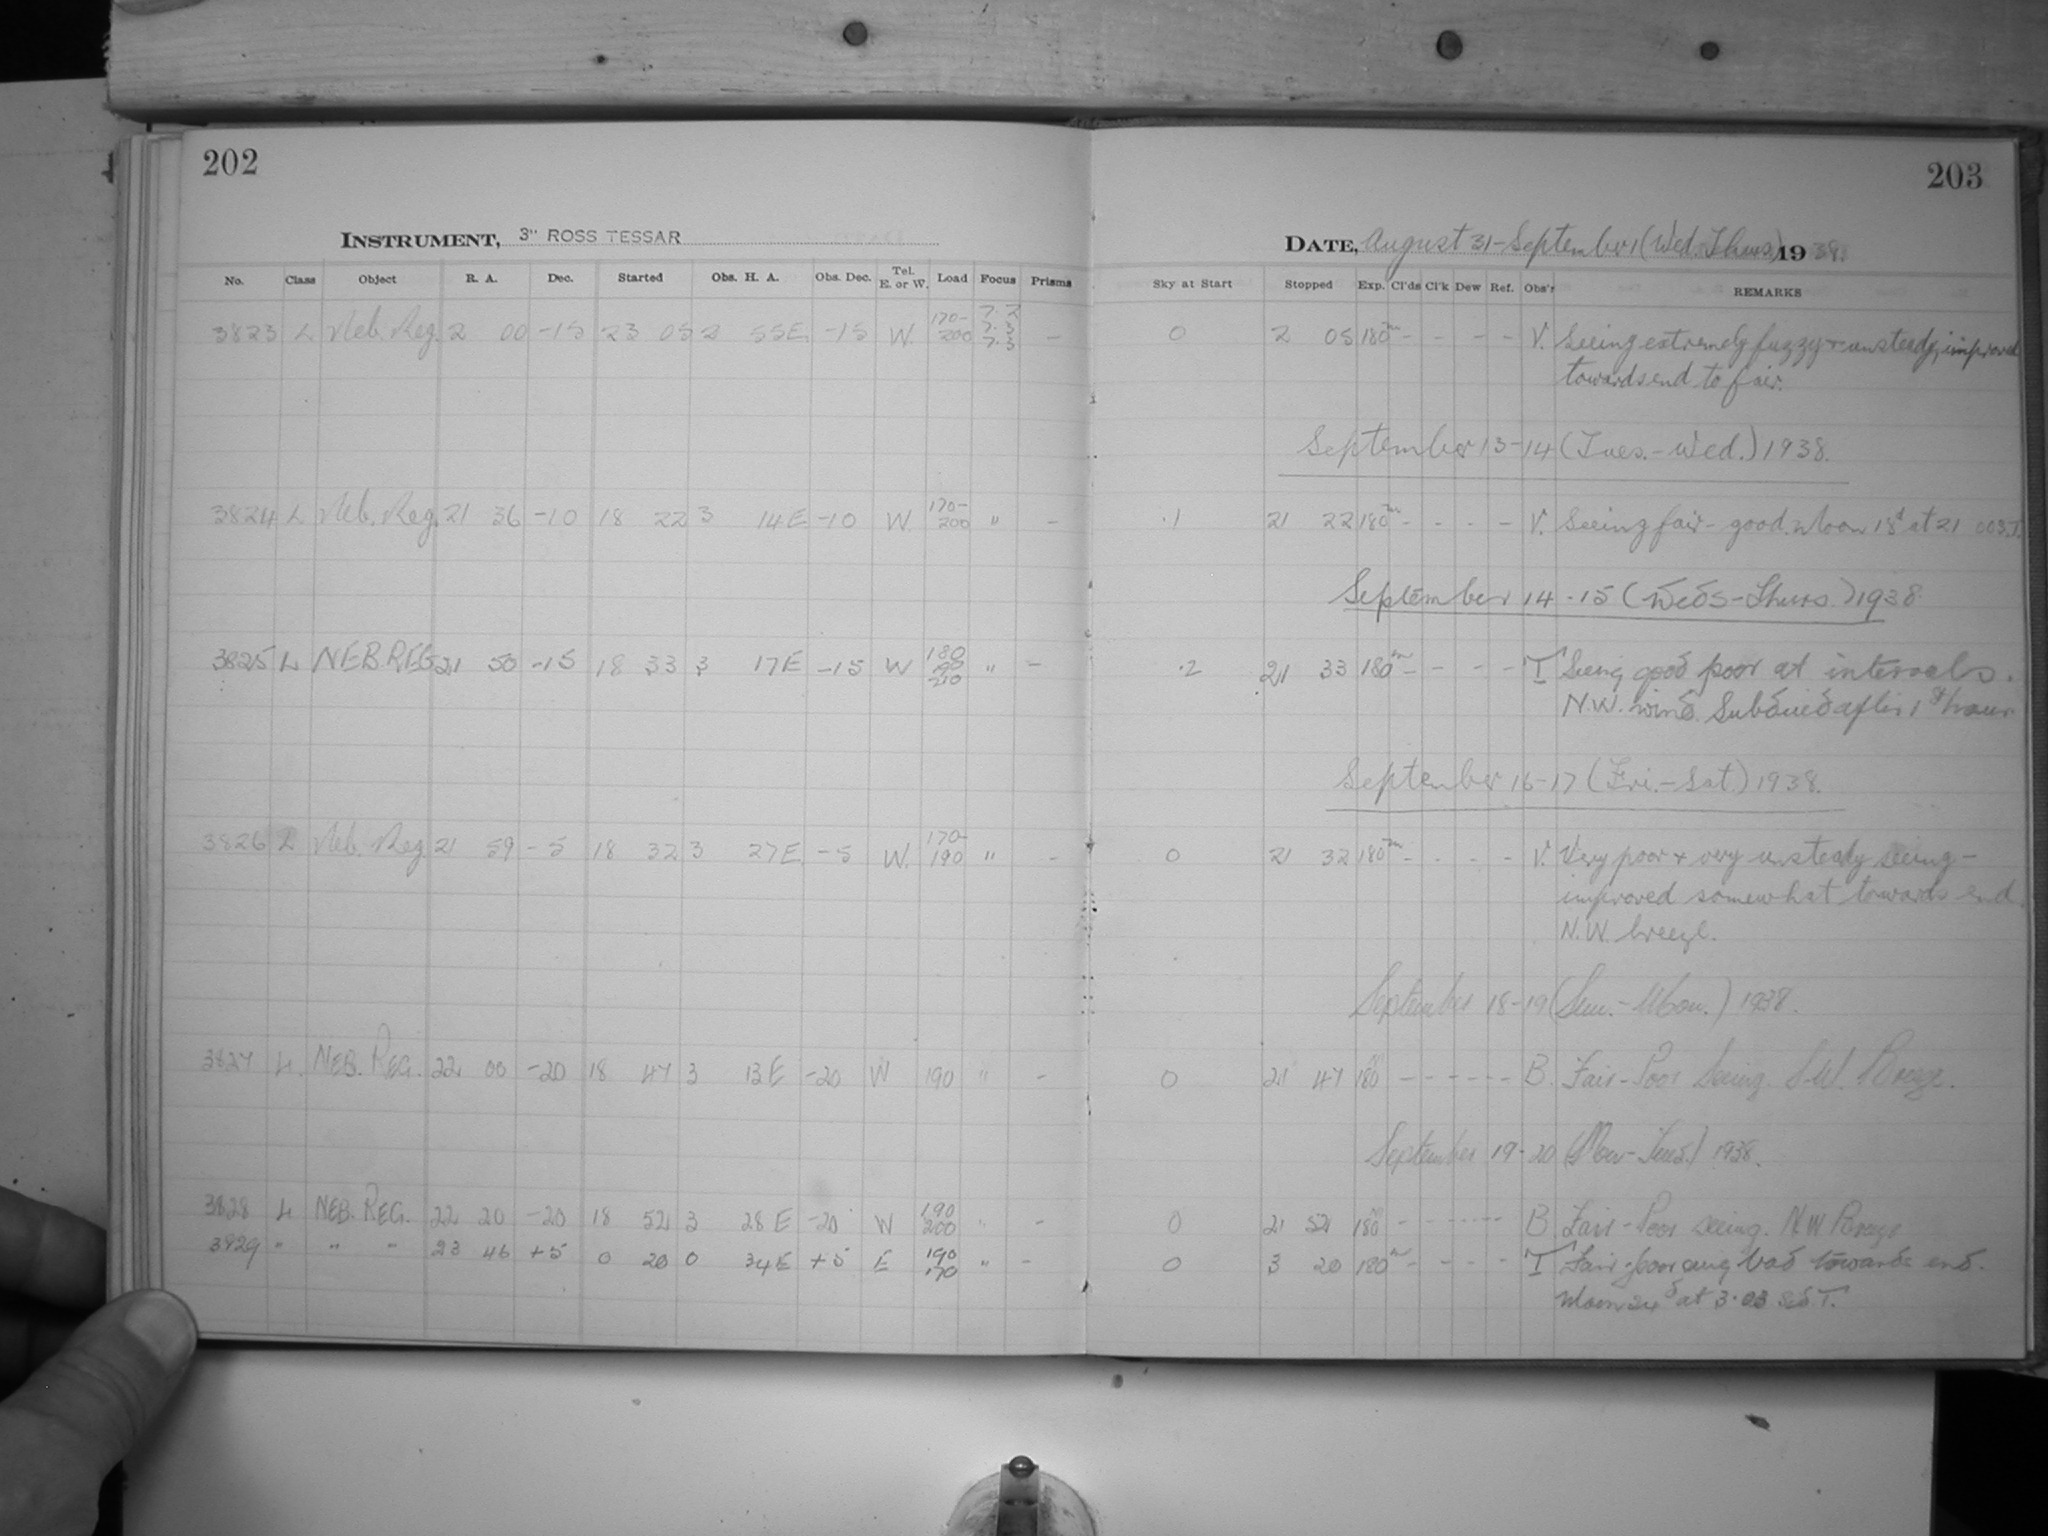 202
203
INSTRUMENT, 3" ROSS TESSAR
DATE, August 31-September 1 (Wed. Thurs) 1938.
No. Class Object R. A. Dec. Started Obs. H. A. Obs. Dec. Tel. E. or W. Load Focus Prisms Sky at Start Stopped Exp. Cl'ds Cl'k Dew Ref. Obs'r REMARKS
3823 L Neb. Reg. 2 00 -15 23 05 2 55E -15 W. 170-200 7.2 7.3 7.3 - 0 2 05 180m - - - - V. Seeing extremely fuzzy & unsteady, improved
towards end to fair.
September 13-14 (Tues.-Wed.) 1938.
3824 L Neb. Reg. 21 36 -10 18 22 3 14E -10 W. 170-200 " - .1 21 22 180m - - - - V. Seeing fair - good. Moon 18d at 21
September 14-15 (Weds-Thurs.) 1938
3825 L NEB REG 21 50 -15 18 33 3 17E -15 W 180 210 " - .2 21 33 180m - - - - T Seeing good poor at intervals.
N.W. wind. Subdued after 1st hour
September 16-17 (Fri.-Sat.) 1938.
3826 L Neb. Reg 21 59 -5 18 32 3 27E -5 W. 170-190 " - 0 21 32 180m - - - - V. Very poor & very unsteady seeing -
improved somewhat towards end.
N.W. breeze.
September 18-19 (Sun.-Mon.) 1938.
3827 L. NEB. REG. 22 00 -20 18 47 3 13E -20 W 190 " - 0 21 47 180m - - - - - - B. Fair-Poor Seeing. S.W. Breeze.
September 19-20 (Mon-Tues.) 1938.
3828 L NEB. REG. 22 20 -20 18 52 3 28E -20 W 190 200 " - 0 21 52 180m - - - - - - B Fair-Poor seeing. N.W Breeze
3829 " " " 23 46 +5 0 20 0 34E +5 E 190 170 " - 0 3 20 180m - - - - T Fair-poor bad towards end.
Moon 24d at 3.03 SdT.